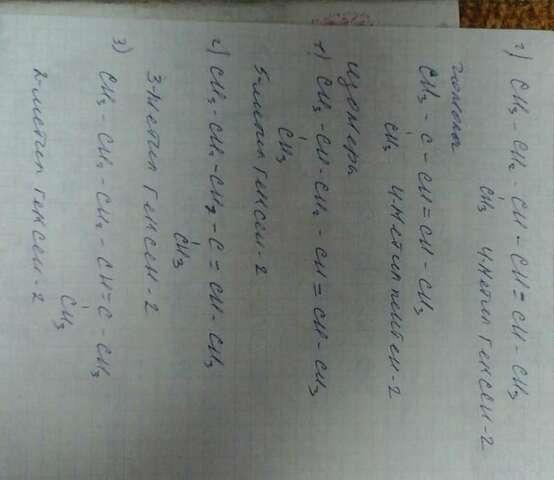 2) CH₃ - CH₂ - CH - CH = CH - CH₃
CH₃ 4-Метил гексен-2
Гомологи
CH₃ - C - CH = CH - CH₃
CH₃ 4-Метилпентен-2
изомеры
1) CH₃ - CH - CH₂ - CH = CH - CH₃
CH₃
5-метил гексен-2
2) CH₃ - CH₂ - CH₂ - C = CH - CH₃
CH₃
3-Метил гексен-2
3) CH₃ - CH₂ - CH₂ - CH = C - CH₃
CH₃
2-метил гексен-2